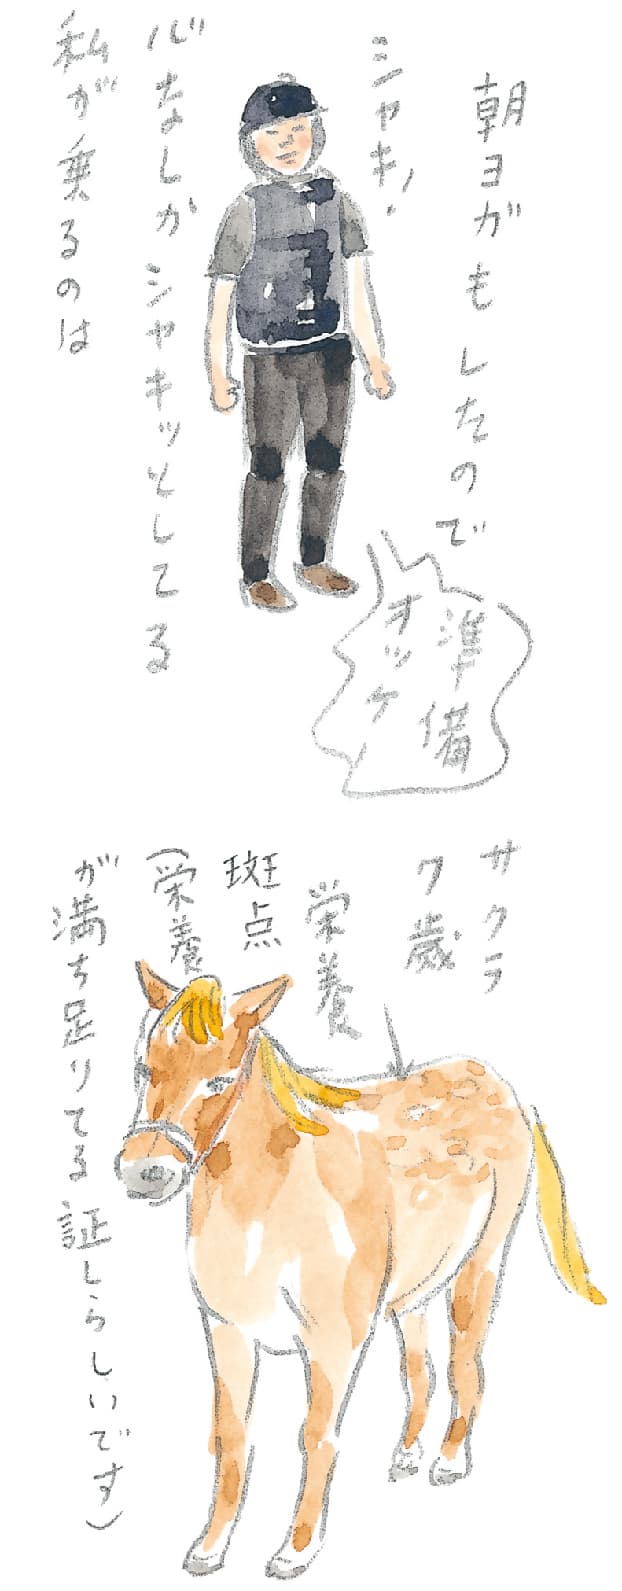 朝ヨガもしたので
シャキ!
準備
オッケ
心なしかシャキッとしてる
私が乗るのは
サクラ
7歳
栄養
斑点
(栄養
が満ち足りてる証しらしいです)